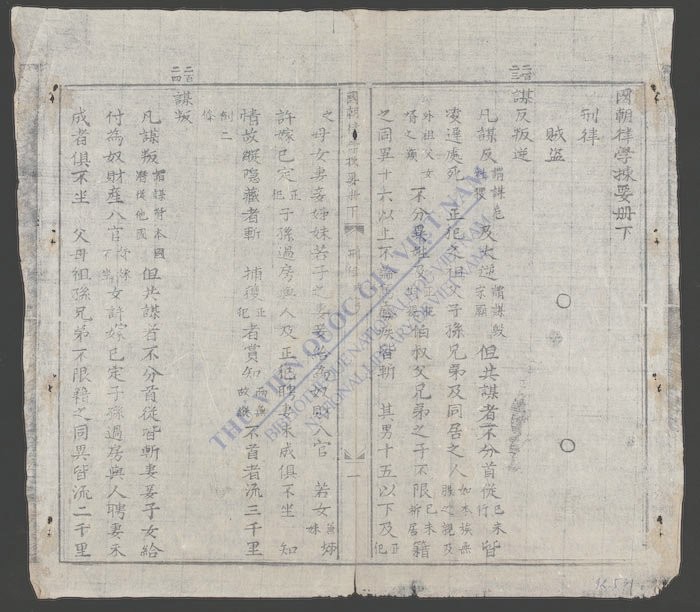 國朝律學揀要册下
刑律
賊盜
二百二三
謀反叛逆
凡謀反謂謀危社稷及大逆謂謀毀宗廟但共謀者不分首從已未行皆
凌遲處死正犯之祖父子孫兄弟及同居之人如本族無服之親及
外祖父妻父女壻之類不分異姓及正犯伯叔父兄弟之子不限已未析居籍
之同異十六以上不論篤廢疾皆斬其男十五以下及正犯
國朝律學揀要册下 刑律 一
之母女妻妾姊妹若子之妻妾給為奴財入官若女兼姊妹
許嫁已定正犯子孫過房與人及正犯聘妻未成俱不坐知
情故縱隱藏者斬捕獲正犯者賞知而無故縱不首者流三千里
創二條
二百二四
謀叛
凡謀叛謂謀背本國潛從他國但共謀者不分首從皆斬妻妾子女給
付為奴財產入官餘不坐女許嫁已定子孫過房與人聘妻未
成者俱不坐父母祖孫兄弟不限籍之同異皆流二千里
THƯ VIỆN QUỐC GIA VIỆT NAM
BIBLIOTHÈQUE NATIONALE DU VIETNAM
NATIONAL LIBRARY OF VIETNAM